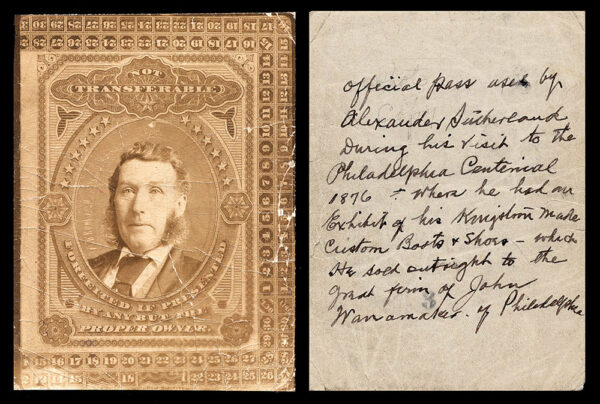 NOT
TRANSFERABLE
FORFEITED IF PRESENTED
BY ANY BUT THE
PROPER OWNER.
15 16 17 18 19 20 21 22 23 24 25 26
official pass used by
Alexander Sutherland
During his visit to the
Philadelphia Centenial
1876 - where he had an
Exhibit of his Kingston made
Custom Boots & Shoes - which
He sold outright to the
great firm of John
Wannamaker. of Philadelphia
3